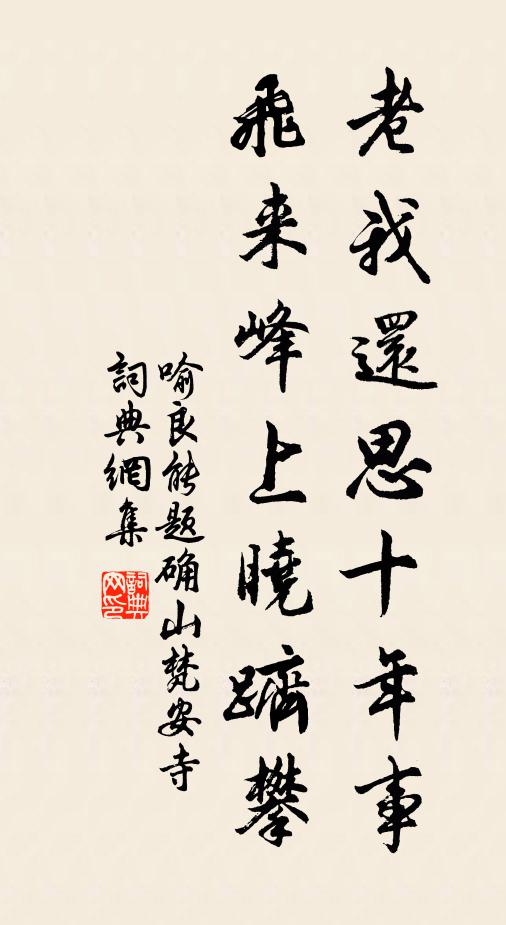 老我還思十年事
飛来峰上曉躋攀
喻良能題确山梵安寺
詞典網集
詞典网印